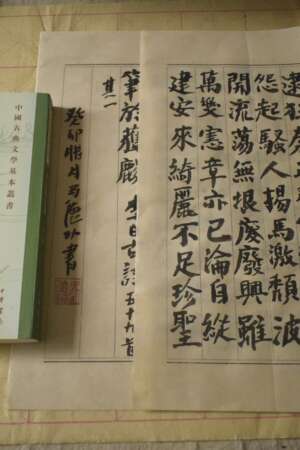 逮狂
怨起騷人揚馬激頹波
開流蕩無垠廢興雖
萬變憲章亦已淪自從
建安來綺麗不足珍聖
筆於獲麟 李白古詩五十九首
其一
癸卯腊月 書
中國古典文學基本叢書